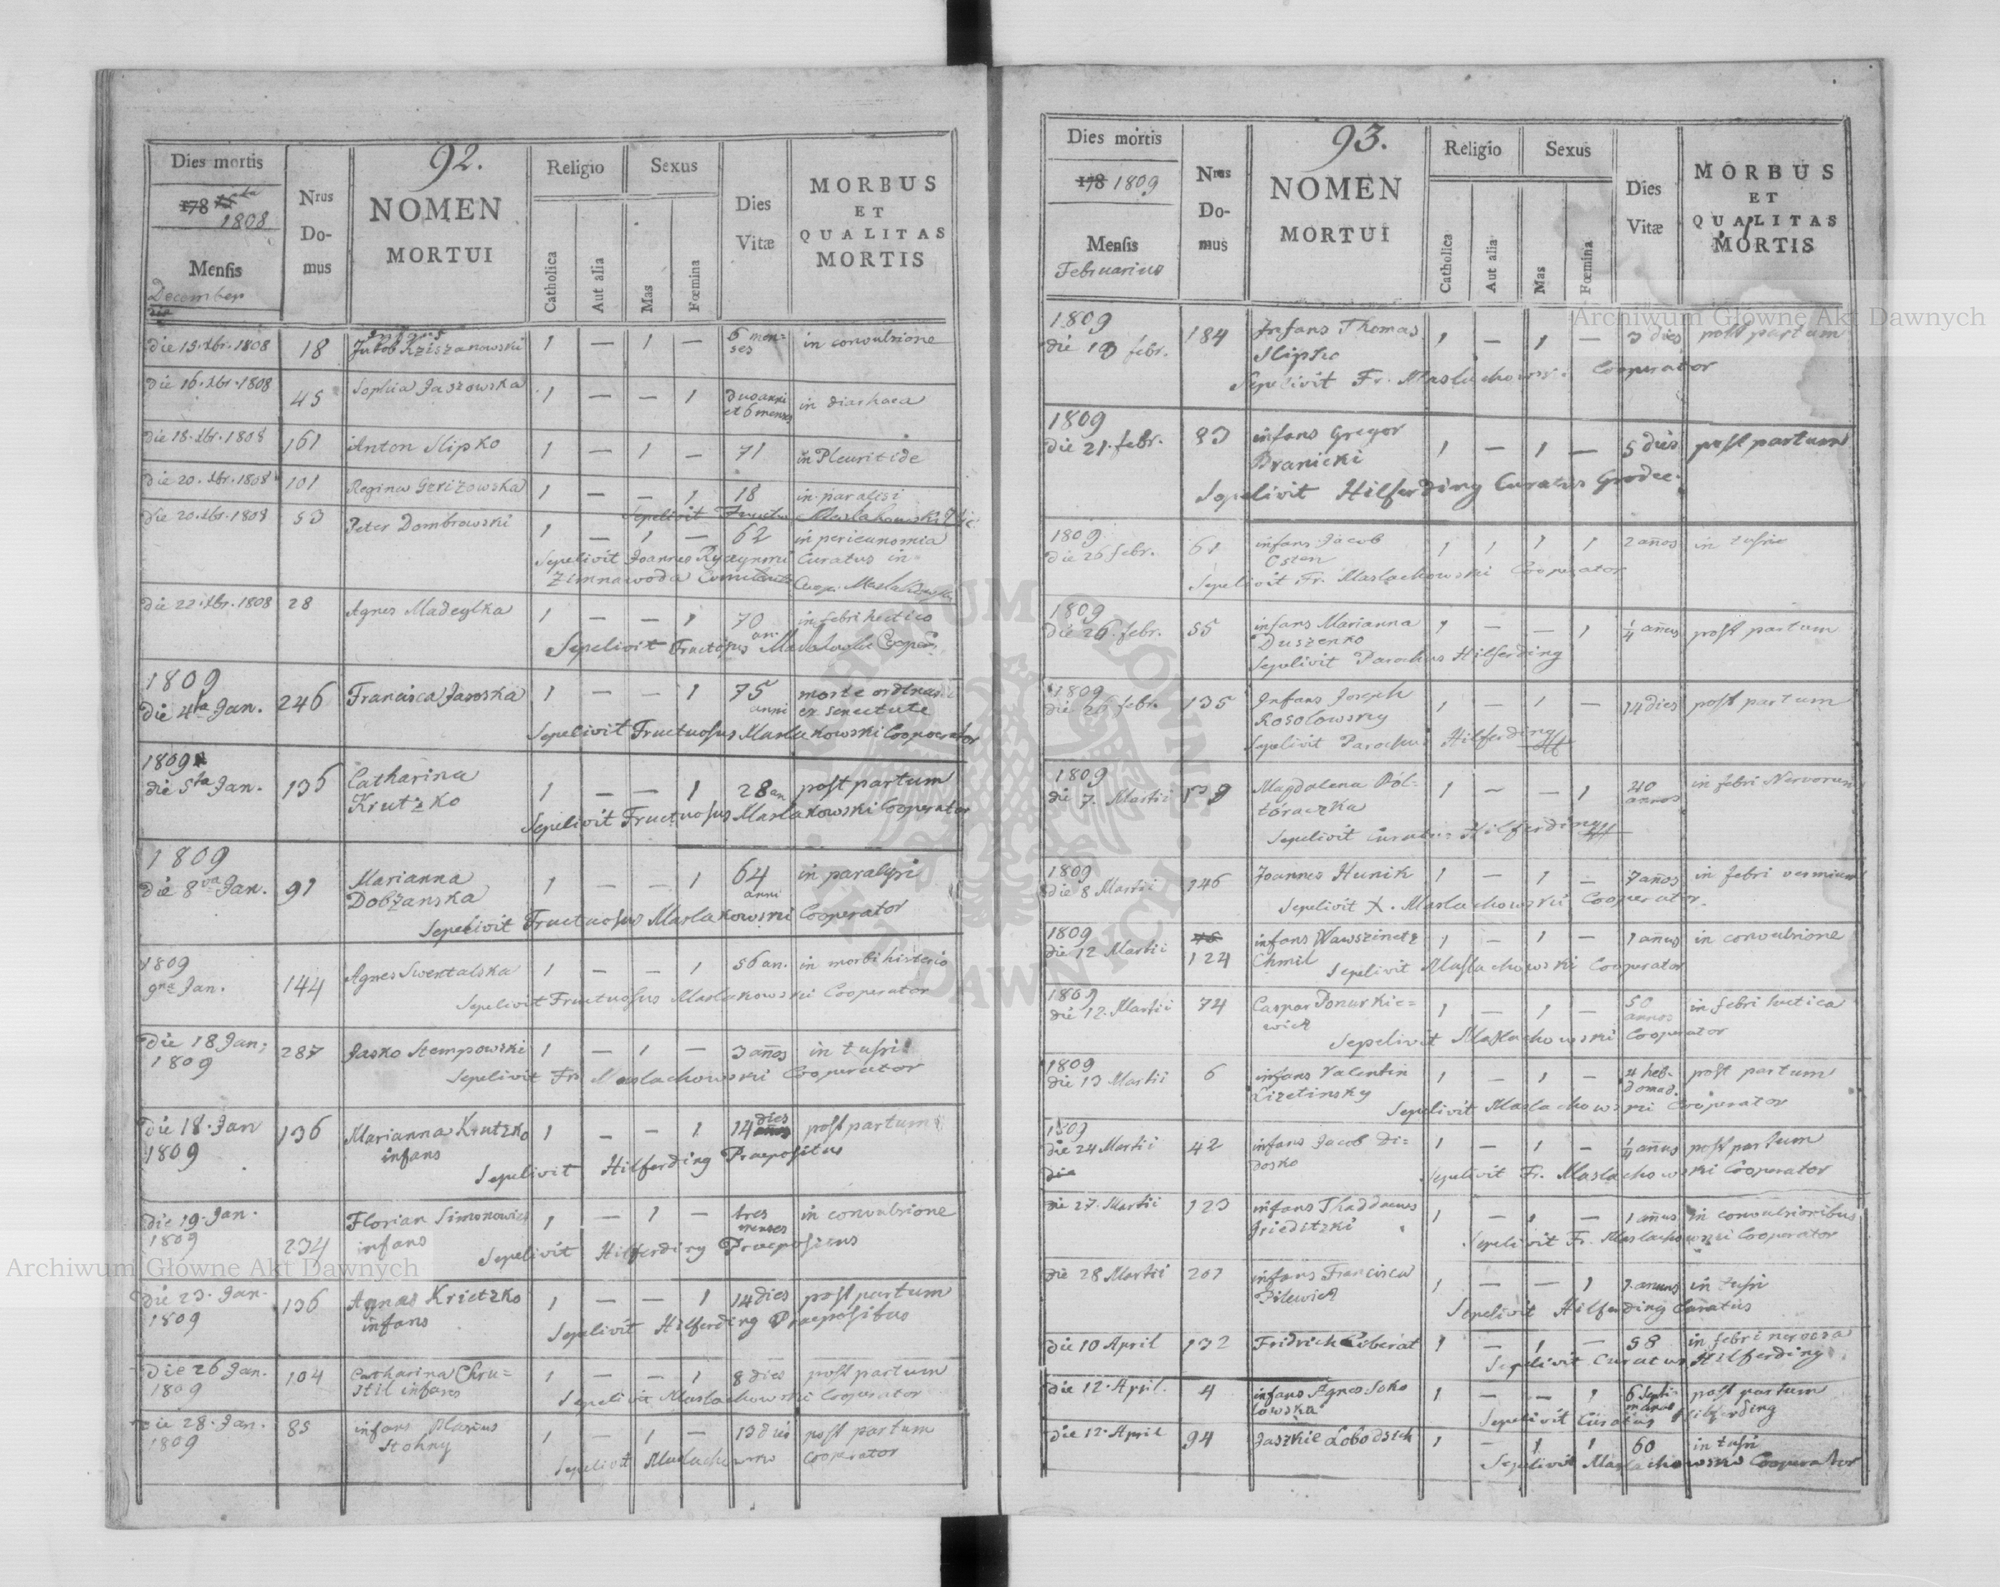 92.
Dies mortis
178
1808
Mensis
December
Nrus
Do-
mus
NOMEN
MORTUI
Religio
Catholica
Aut alia
Sexus
Mas
Fœmina
Dies
Vitæ
MORBUS
ET
QUALITAS
MORTIS
die 15. Xbr. 1808 18 Jakob Krziszanowski 1 — 1 — 6 men= in convulsione
ses
die 16. Xbr. 1808 45 Sophia Jaszowska 1 — — 1 duo anni in diarhaea
et 6 menses
die 18. Xbr. 1808 161 Anton Slipko 1 — 1 — 71 in Pleuritide
die 20. Xbr. 1808 101 Regina Grizowska 1 — — 1 18 in paralisi
Sepelivit
die 20. Xbr. 1808 53 Peter Dombrowski 1 — 1 — 62
Sepelivit Joannes Curatus in
Zimnawoda
die 22. Xbr. 1808 28 Agnes 1 — — 1 70 in febri hectica
an.
Sepelivit
1809
die 4ta Jan. 246 Francisca Jaroska 1 — — 1 75 morte ordinaria
anni ex senectute
Sepelivit Fructuosus Maslakowski Cooperator
1809
die 5ta Jan. 135 Catharina 1 — — 1 28 an post partum
Krutzko
Sepelivit Fructuosus Maslakowski Cooperator
1809
die 8va Jan. 91 Marianna 1 — — 1 64 in paralysi
Dobzanska anni
Sepelivit Fructuosus Maslakowski Cooperator
1809
9na Jan. 144 Agnes Swentalska 1 — — 1 56 an. in morbi histerio
Sepelivit Fructuosus Maslakowski Cooperator
Die 18 Jan; 287 Jasko Stempowski 1 — 1 — 3 años in tussi
1809
Sepelivit Fr. Maslachowski Cooperator
die 18. Jan 136 Marianna Krutzko 1 — — 1 14 dies post partum
1809 infans
Sepelivit Hilferding Praepositus
die 19. Jan. Florian Simonowicz 1 — 1 — tres in convulsione
1809 234 infans menses
Sepelivit Hilferding Praepositus
die 23. Jan. 136 Agnes Krietzko 1 — — 1 14 dies post partum
1809 infans
Sepelivit Hilferding Praepositus
Die 26 Jan. 104 Catharina Chru= 1 — — 1 8 dies post partum
1809 stil infans
Sepelivit Maslachowski Cooperator
Die 28. Jan. 85 infans 1 — 1 — 13 dies post partum
1809 Stohny
Sepelivit Cooperator
93.
Dies mortis
178 1809
Mensis
Februarius
Nrus
Do-
mus
NOMEN
MORTUI
Religio
Catholica
Aut alia
Sexus
Mas
Fœmina
Dies
Vitæ
MORBUS
ET
QUALITAS
MORTIS
1809
die 10 febr. 184 Infans Thomas 1 — 1 — 3 dies post partum
Slipko
Sepelivit Fr. Maslachowski Cooperator
1809
die 21. febr. 93 infans Gregor 1 — 1 — 5 dies post partum
Branicki
Sepelivit Hilferding Curatus Grodec.
1809
die 26 febr. 61 infans Jacob 1 1 1 1 2 años in tussi
Osten
Sepelivit Fr. Maslachowski Cooperator
1809
die 26. febr. 55 infans Marianna 1 — — 1 1/4 añus post partum
Duszenko
Sepelivit Parochus Hilferding
1809
die 26 febr. 135 Infans Joseph 1 — 1 — 14 dies post partum
Rosolowsky
Sepelivit Parochus Hilferding
1809
die 7. Martii Magdalena Pól= 1 — — 1 40 in febri Nervorum
toraczka annos
Sepelivit Curatus Hilferding
1809
die 8 Martii 146 Joannes Hunik 1 — 1 — 7 años in febri vermium
Sepelivit X. Maslachowski Cooperator.
1809
die 12 Martii 124 infans Wawszinetz 1 — 1 — 1 añus in convulsione
Chmil Sepelivit Maslachowski Cooperator
1809
die 12. Martii 74 Caspar Ponurkie= 1 — 1 — 50 in febri hectica
wicz annos
Sepelivit Maslachowski Cooperator
1809
die 13 Martii 6 infans Valentin 1 — 1 — 4 heb= post partum
Lizetinsky domad.
Sepelivit Maslachowski Cooperator
1809
die 24 Martii 42 infans Jacob Di= 1 — 1 — 1/4 añus post partum
die dosko
Sepelivit Fr. Maslachowski Cooperator
die 27. Martii 123 infans Thaddaeus 1 — 1 — 1 añus in convulsionibus
Griedetzki
Sepelivit Fr. Maslachowski Cooperator
die 28 Martii 201 infans Francisca 1 — — 1 1 annus in tussi
Pilewicz
Sepelivit Hilferding Curatus
die 10 April 132 Fridrich Liberat 1 — 1 — 58 in febri nervosa
Sepelivit Curatus Hilferding
die 12. April. 4 infans Agnes Soko 1 — — 1 6 Septi= post partum
lowska manas
Sepelivit Curatus Hilferding
die 12. April 94 Jaszkie Lobodzich 1 — 1 1 60 in tussi
Sepelivit Maslachowski Cooperator
Archiwum Główne Akt Dawnych
Archiwum Główne Akt Dawnych
ARCHIWUM GŁÓWNE AKT DAWNYCH